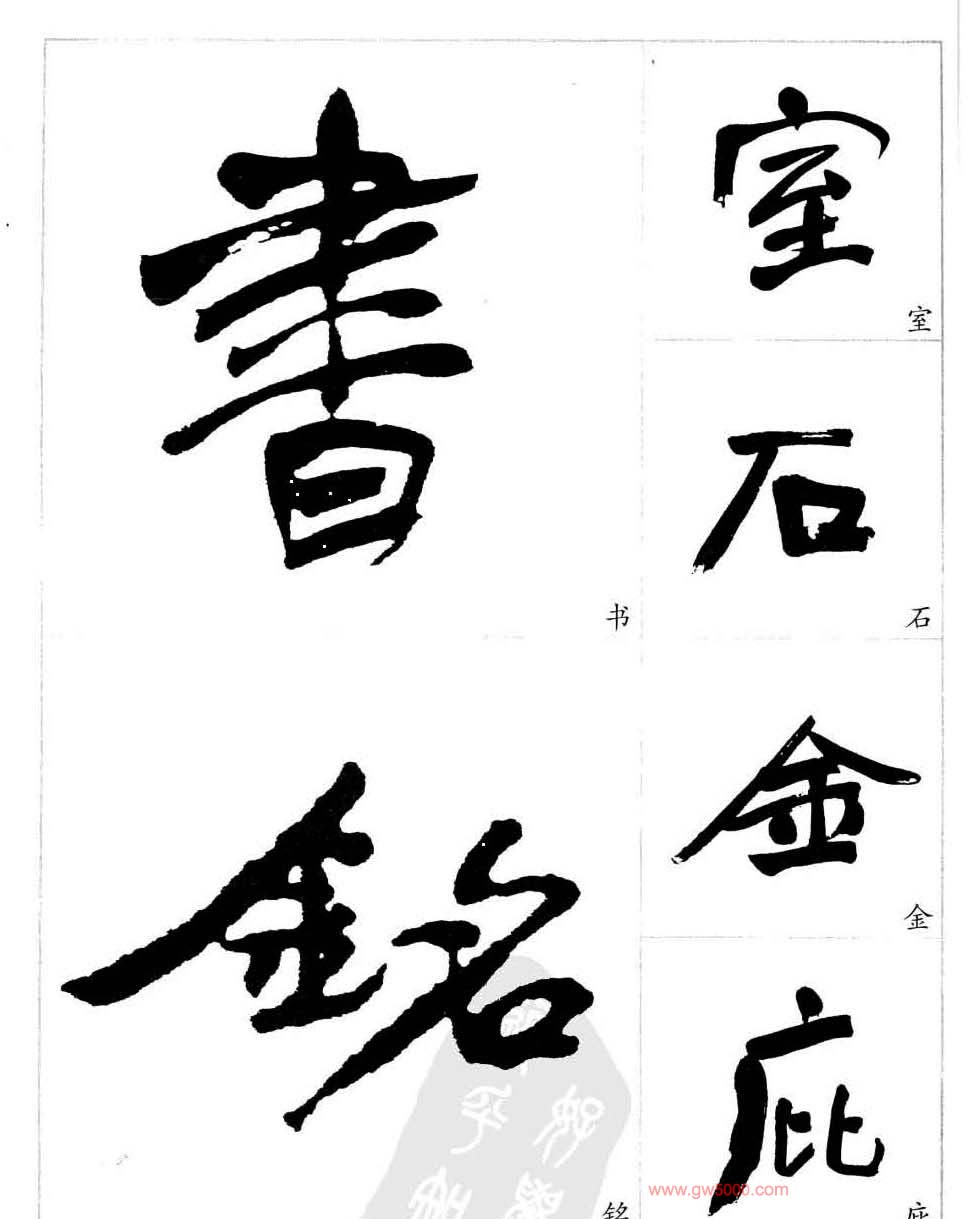 書
书
銘
铭
室
室
石
石
金
金
庇
庇
www.gw5000.com